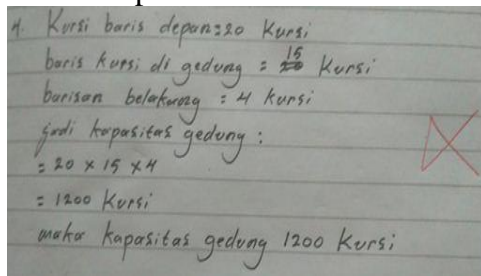 4. Kursi baris depan = 20 Kursi
baris kursi di gedung = 15 Kursi
barisan belakang = 4 kursi
jadi kapasitas gedung :
= 20 x 15 x 4
= 1200 Kursi
maka kapasitas gedung 1200 Kursi